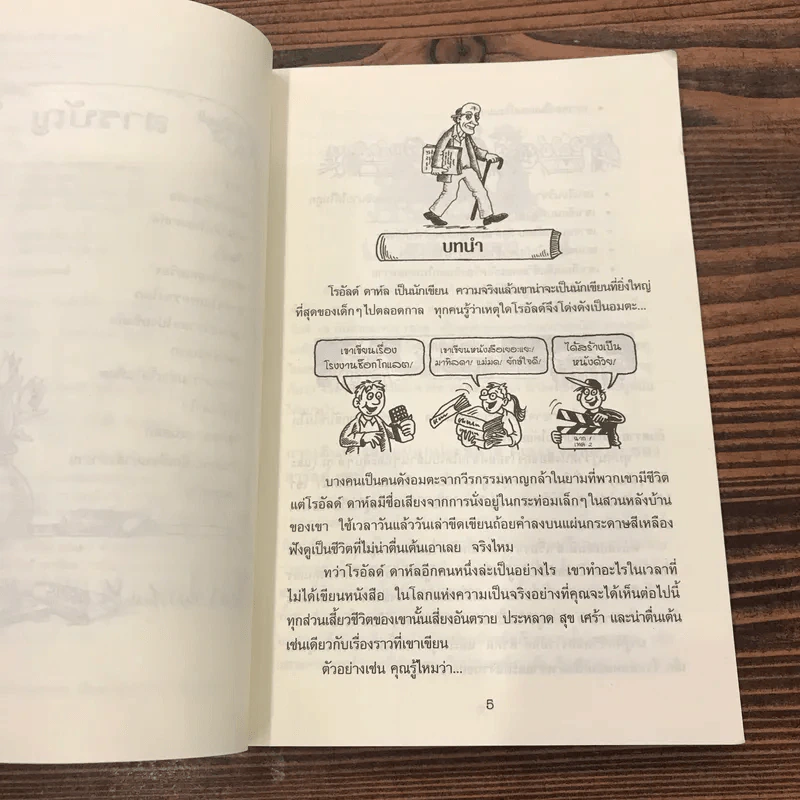 สารบัญ
บทนำ
โรอัลด์ ดาห์ล เป็นนักเขียน ความจริงแล้วเขาน่าจะเป็นนักเขียนที่ยิ่งใหญ่
ที่สุดของเด็กๆ ไปตลอดกาล ทุกคนรู้ว่าเหตุใดโรอัลด์จึงโด่งดังเป็นอมตะ...
เขาเขียนเรื่อง
โรงงานช็อกโกแลต!
เขาเขียนหนังสือเยอะแยะ!
มาทิลดา! แม่มด! ยักษ์ใจดี!
ได้สร้างเป็น
หนังด้วย!
ฉาก 1
เทค 2
บางคนเป็นคนดังอมตะจากวีรกรรมหาญกล้าในยามที่พวกเขามีชีวิต
แต่โรอัลด์ ดาห์ลมีชื่อเสียงจากการนั่งอยู่ในกระท่อมเล็กๆ ในสวนหลังบ้าน
ของเขา ใช้เวลาวันแล้ววันเล่าขีดเขียนถ้อยคำลงบนแผ่นกระดาษสีเหลือง
ฟังดูเป็นชีวิตที่ไม่น่าตื่นเต้นเอาเลย จริงไหม
ทว่าโรอัลด์ ดาห์ลอีกคนหนึ่งล่ะเป็นอย่างไร เขาทำอะไรในเวลาที่
ไม่ได้เขียนหนังสือ ในโลกแห่งความเป็นจริงอย่างที่คุณจะได้เห็นต่อไปนี้
ทุกส่วนเสี้ยวชีวิตของเขานั้นเสี่ยงอันตราย ประหลาด สุข เศร้า และน่าตื่นเต้น
เช่นเดียวกับเรื่องราวที่เขาเขียน
ตัวอย่างเช่น คุณรู้ไหมว่า...
5